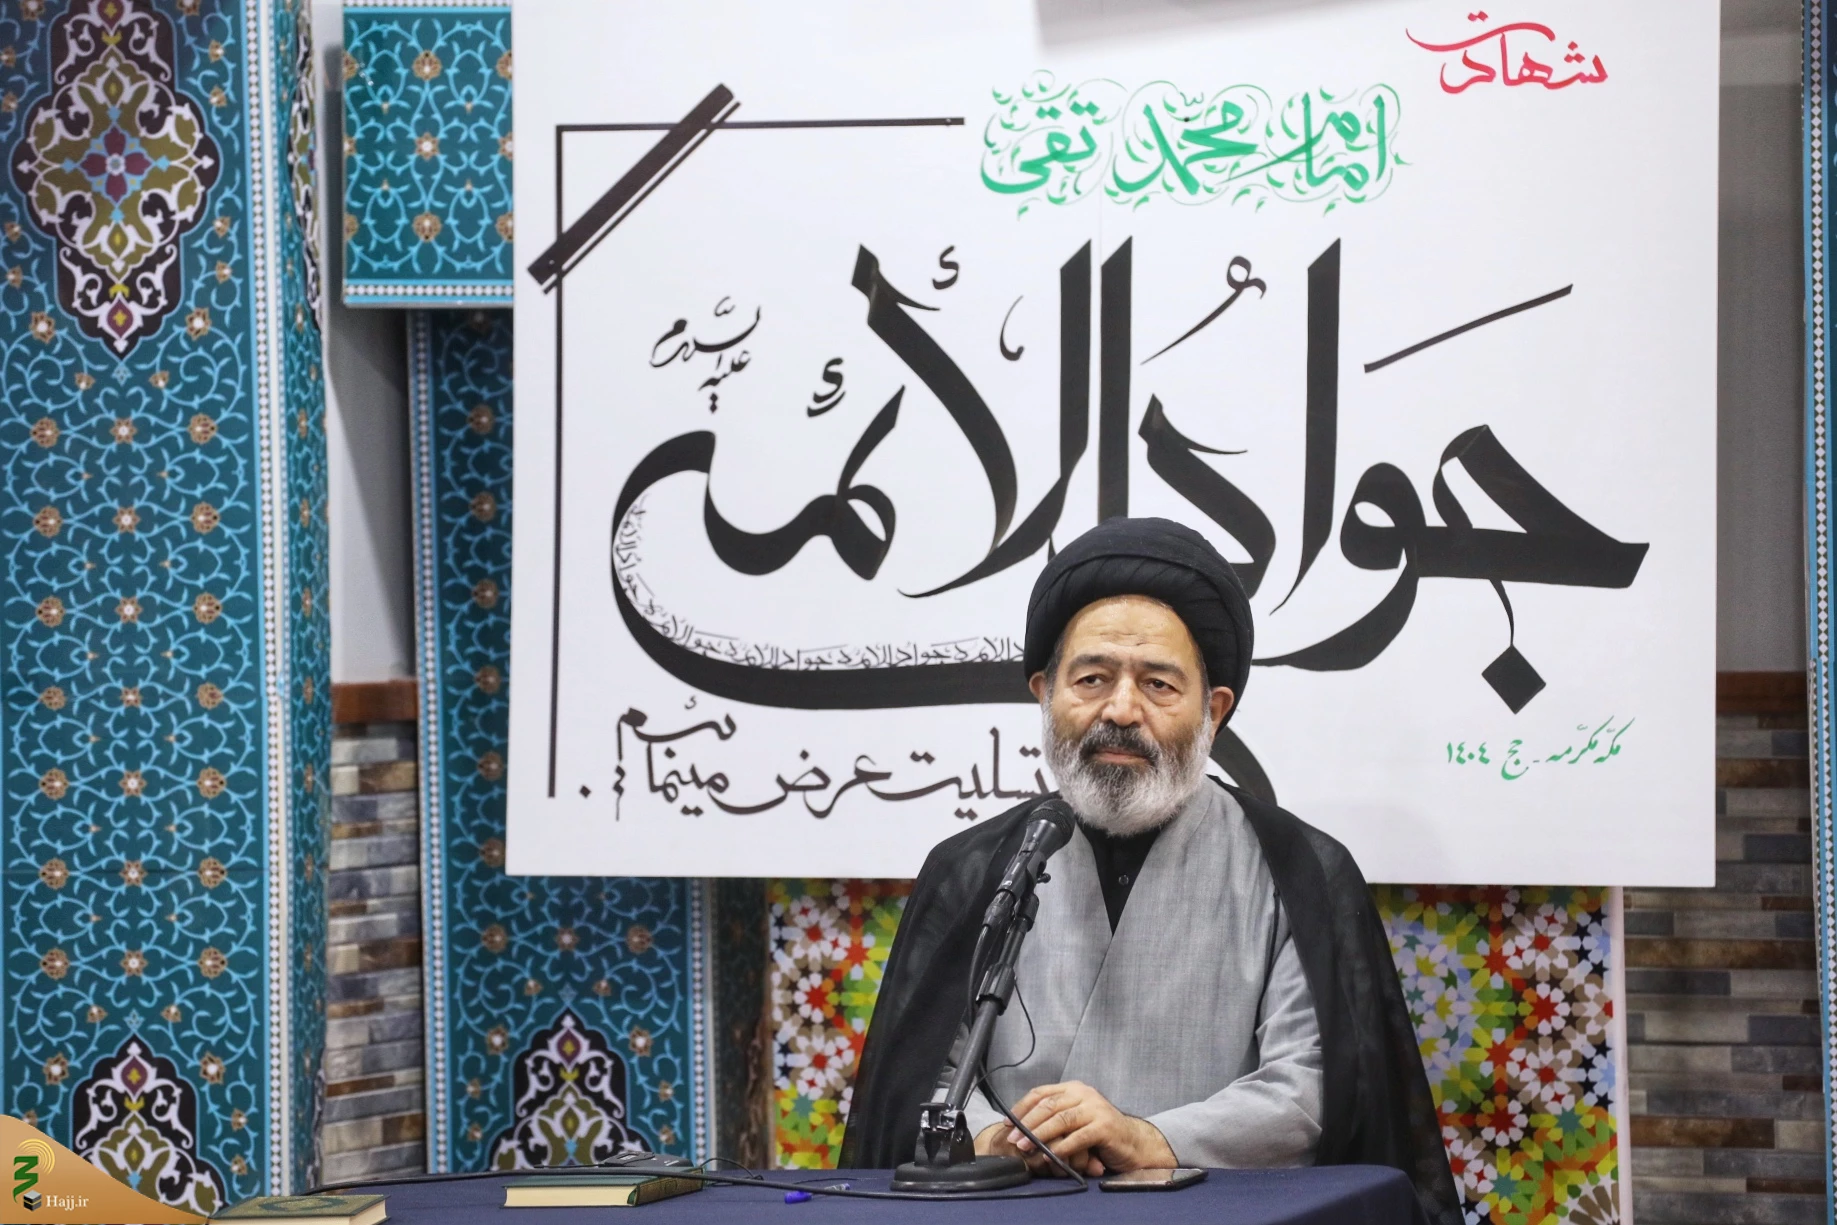 شهادت
امام محمد تقی
جواد الأئمه
علیه السلام
جواد الائمه جواد الائمه جواد الائمه جواد الائمه
تسلیت عرض مینمائیم
مکّه مکرّمه - حج ۱۴۰۴
Hajj.ir